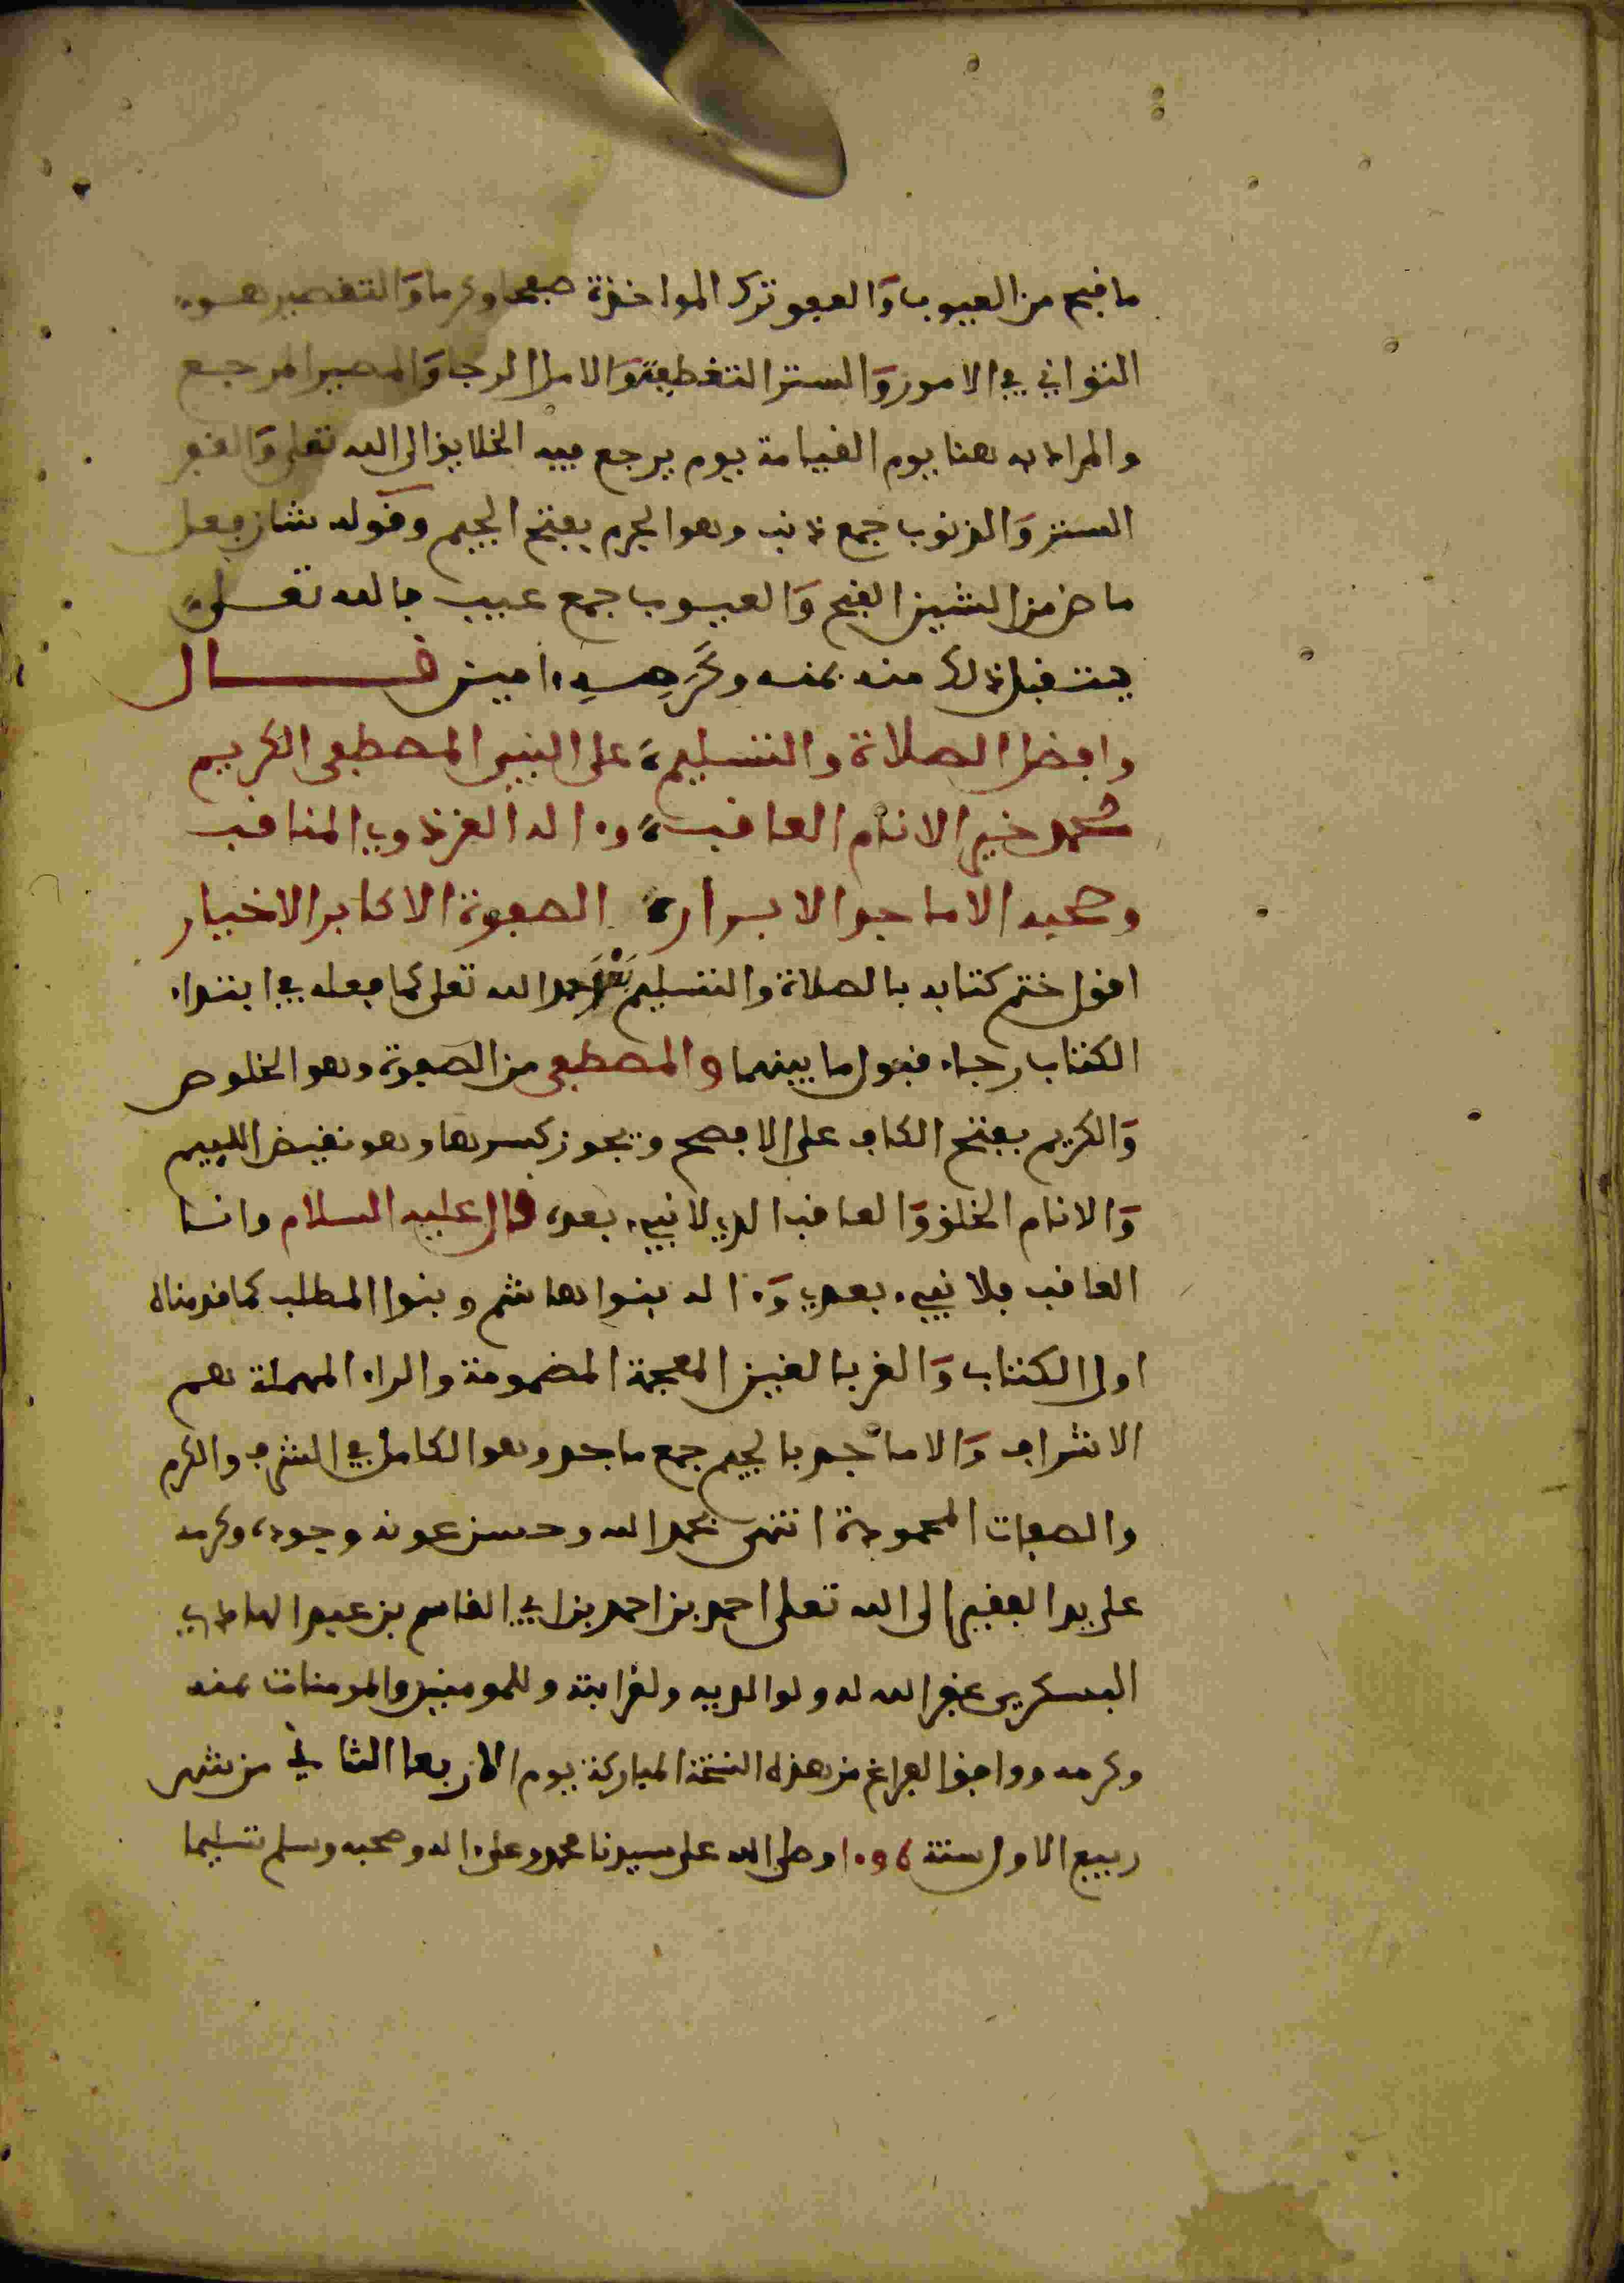 ما فيهم من العيوب والعفو ترك المواخذة صفحا وكرما والتقصير هو
التواني في الامور والستر التغطية والامل الرجا والمصير المرجع
والمراد به هنا يوم القيامة يوم يرجع فيه الخلايق الى الله تعلى والغفر
الستر والذنوب جمع ذنب وهو الجرم بفتح الجيم وقوله شان فعل
ماض من الشين القبح والعيوب جمع عيب فالله تعلى
يتقبل ذلك منه بمنه وكرمه امين قال
وافضل الصلاة والتسليم على النبي المصطفى الكريم
محمد خير الانام العاقب وءاله الغر ذوي المناقب
وصحبه الاماجد الابرار الصفوة الاكابر الاخيار
اقول ختم كتابه بالصلاة والتسليم بعد حمد الله تعلى كما فعله في ابتداء
الكتاب رجاء قبول ما بينهما والمصطفى من الصفوة وهو الخلوص
والكريم بفتح الكاف على الافصح ويجوز كسرها وهو نقيض اللييم
والانام الخلق والعاقب الذي لا نبيء بعده قال عليه السلام وانا
العاقب فلا نبيء بعدي وءاله بنوا هاشم وبنوا المطلب كما قدمناه
اول الكتاب والغر بالغين المعجمة المضمومة والراء المهملة هم
الاشراف والاماجد بالجيم جمع ماجد وهو الكامل في الشرف والكرم
والصفات المحمودة انتهى بحمد الله وحسن عونه وجوده وكرمه
على يد الفقير الى الله تعلى احمد بن احمد بن ابي القاسم بن عبد الهادي
البسكري غفر الله له ولوالديه ولقرابته وللمومنين والمومنات بمنه
وكرمه ووافق الفراغ من هذه النسخة المباركة يوم الاربعا الثاني من شهر
ربيع الاول سنة وصلى الله على سيدنا محمد وعلى ءاله وصحبه وسلم تسليما